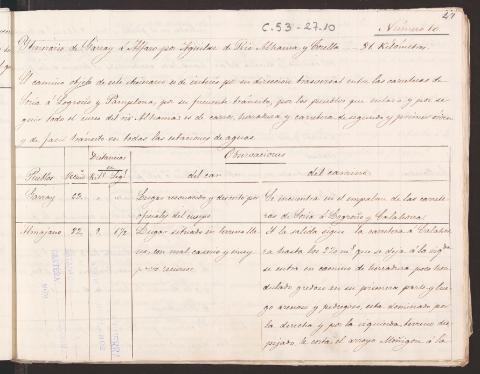 21
C.53-27.10
Número 10.
Ytinerario de Garray á Alfaro por Aguilar de Rio Alhama y Corella 81 Kilometros.
El camino objeto de este itinerario es de interés por su direccion trasversal entre las carreteras de
Soria á Logroño y Pamplona, por su frecuente tránsito, por los pueblos que enlaza y por se-
guir todo el curso del rio Alhama: es de carros, herradura y carretera de segundo y primer orden
y de facil tránsito en todas las estaciones de aguas.
Distancias
en
Observaciones
Pueblos Vecinos Kils Legs del car del camino
Garray 23 " "
Lugar reconocido y descrito por
oficiales del cuerpo
Se encuentra en el empalme de las carrete-
ras de Soria á Logroño y Calahorra.
Almajano 82 9 1 1/2
Lugar situado en terreno lla-
no, con mal caserio y muy
pocos recursos
A la salida sigue la carretera á Calahor-
ra hasta los que se deja á la izqda
se entra en camino de herradura poco hon-
dulado, gredoso en su primera parte, y lue-
go arenoso y pedregoso, esta dominado por
la derecha y por la izquierda terreno des-
pejado, le corta el arroyo Moñigon á la